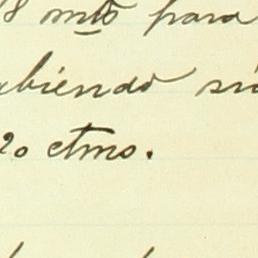 8 mto para
biendo
2o ctmo.